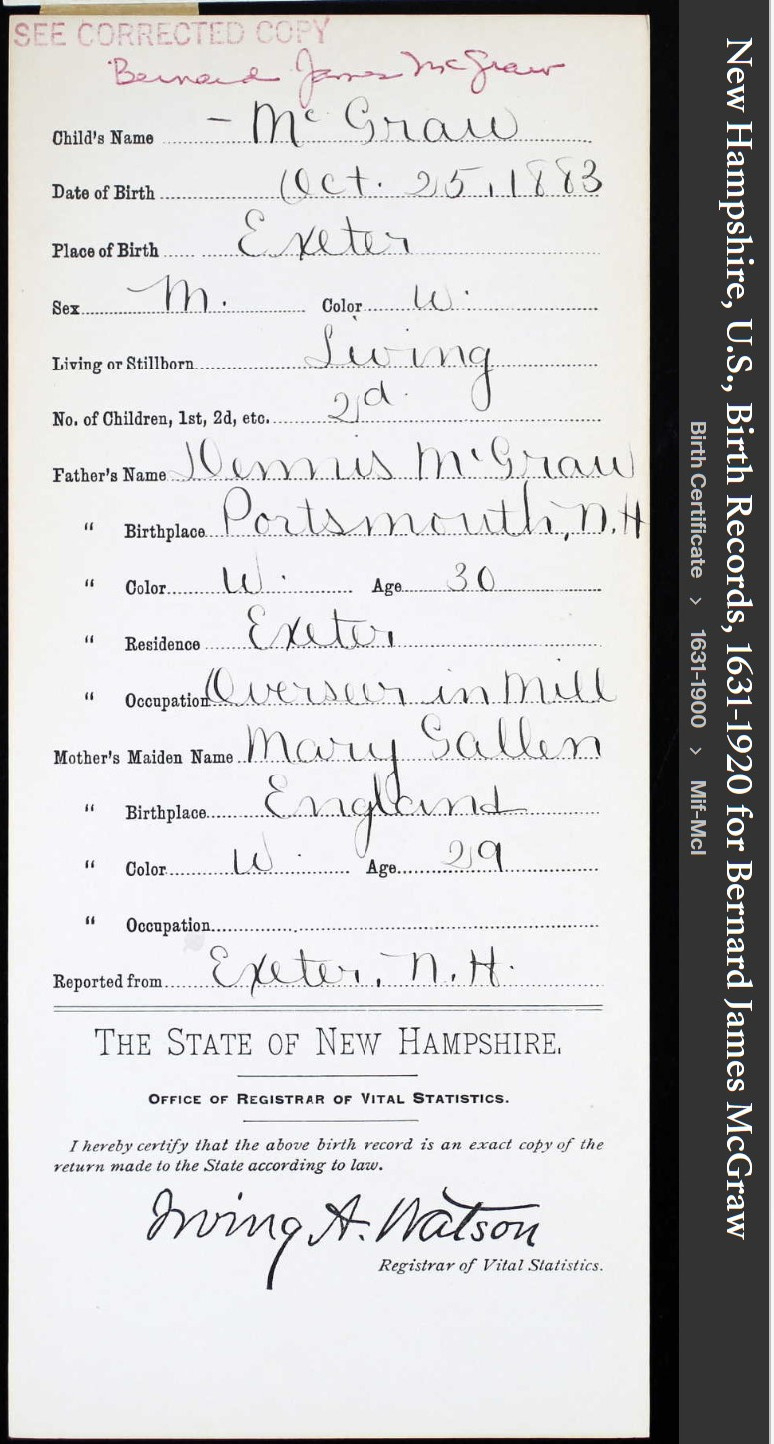 SEE CORRECTED COPY
Bernard James McGraw
Child's Name – McGraw
Date of Birth Oct. 25, 1883
Place of Birth Exeter
Sex M. Color W.
Living or Stillborn Living
No. of Children, 1st, 2d, etc. 2d.
Father's Name Dennis McGraw
" Birthplace Portsmouth, N.H
" Color W. Age 30
" Residence Exeter
" Occupation Overseer in Mill
Mother's Maiden Name Mary Gallen
" Birthplace England
" Color W. Age 29
" Occupation
Reported from Exeter, N.H.
THE STATE OF NEW HAMPSHIRE.
OFFICE OF REGISTRAR OF VITAL STATISTICS.
I hereby certify that the above birth record is an exact copy of the
return made to the State according to law.
Irving A. Watson
Registrar of Vital Statistics.
New Hampshire, U.S., Birth Records, 1631-1920 for Bernard James McGraw
Birth Certificate > 1631-1900 > Mif-Mcl